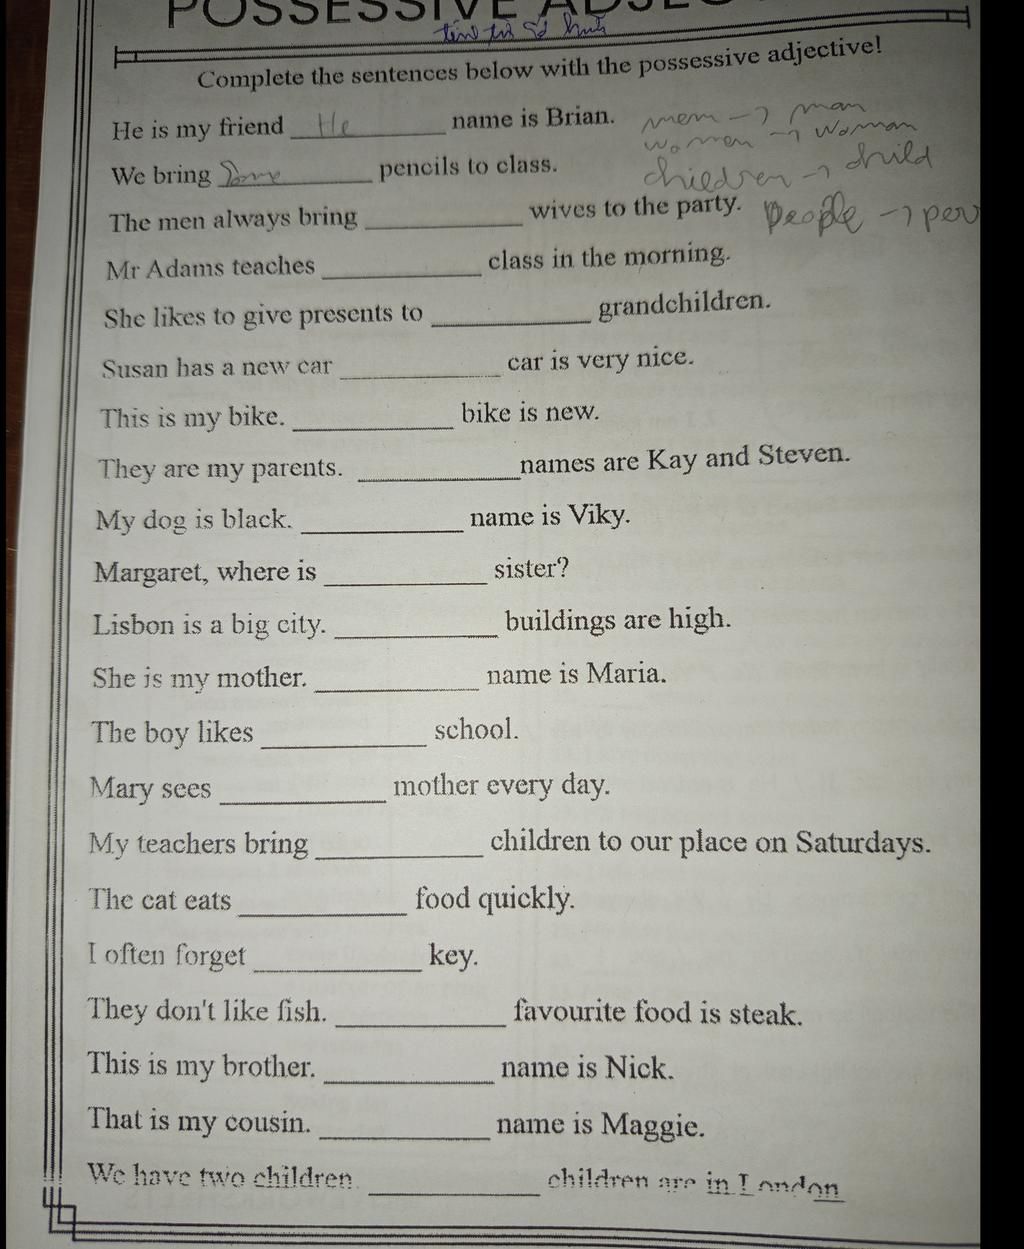 POSSESSIVE
Complete the sentences below with the possessive adjective!
He is my friend He name is Brian.
men → man
women → woman
We bring pencils to class.
children → child
The men always bring ____________ wives to the party.
people → per
Mr Adams teaches ____________ class in the morning.
She likes to give presents to ____________ grandchildren.
Susan has a new car ____________ car is very nice.
This is my bike. ____________ bike is new.
They are my parents. ____________ names are Kay and Steven.
My dog is black. ____________ name is Viky.
Margaret, where is ____________ sister?
Lisbon is a big city. ____________ buildings are high.
She is my mother. ____________ name is Maria.
The boy likes ____________ school.
Mary sees ____________ mother every day.
My teachers bring ____________ children to our place on Saturdays.
The cat eats ____________ food quickly.
I often forget ____________ key.
They don't like fish. ____________ favourite food is steak.
This is my brother. ____________ name is Nick.
That is my cousin. ____________ name is Maggie.
We have two children. ____________ children are in London